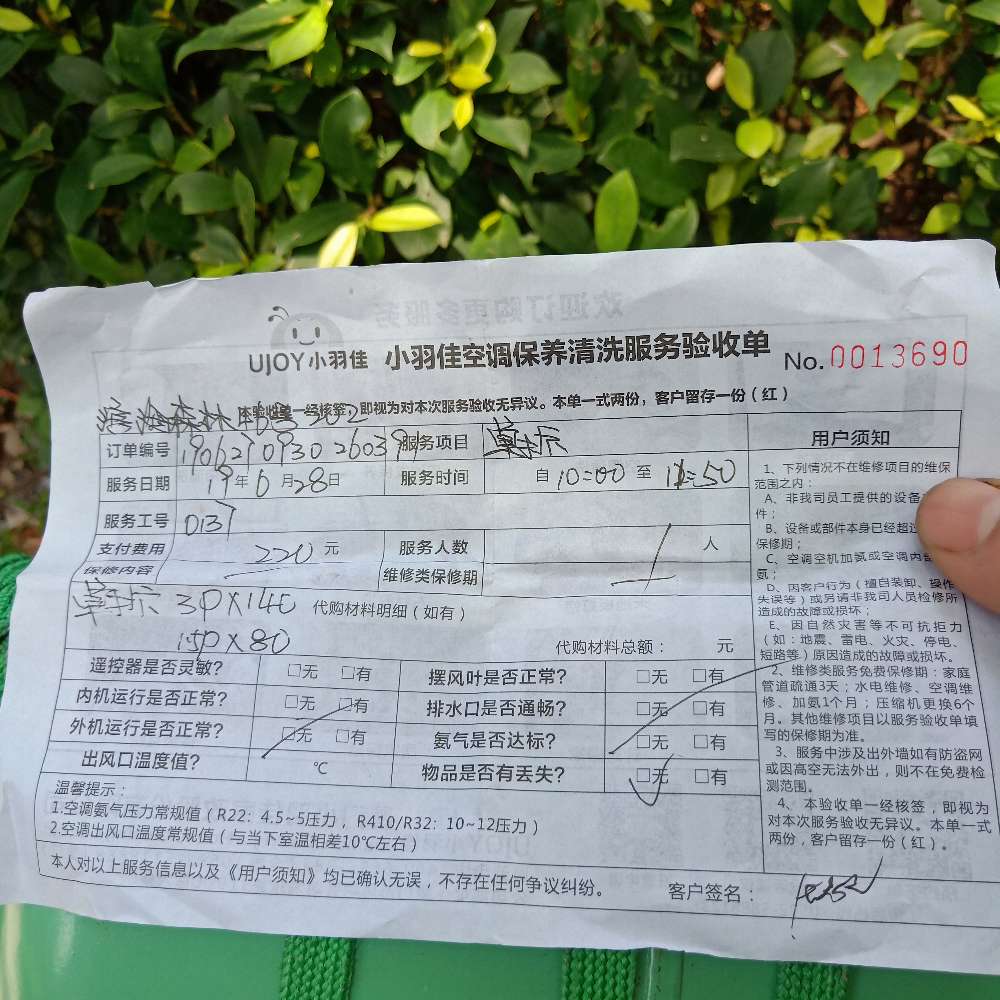 欢迎订购更多服务
UJOY小羽佳 小羽佳空调保养清洗服务验收单 No.0013690
本验收单一经核签，即视为对本次服务验收无异议。本单一式两份，客户留存一份（红）
订单编号 服务项目
服务日期 19年6月28日 服务时间 自10:00至
服务工号 0137
支付费用 220元 服务人数 1人
保修内容 维修类保修期
3P×140 代购材料明细（如有）
1.5P×80 代购材料总额： 元
遥控器是否灵敏? □无 □有 摆风叶是否正常? □无 □有
内机运行是否正常? □无 □有 排水口是否通畅? □无 □有
外机运行是否正常? □无 □有 氨气是否达标? □无 □有
出风口温度值? ℃ 物品是否有丢失? □无 □有
温馨提示：
1.空调氨气压力常规值（R22：4.5~5压力，R410/R32：10~12压力）
2.空调出风口温度常规值（与当下室温相差10℃左右）
本人对以上服务信息以及《用户须知》均已确认无误，不存在任何争议纠纷。 客户签名：
用户须知
1、下列情况不在维修项目的维保
范围之内：
A、非我司员工提供的设备
件；
B、设备或部件本身已经超
保修期；
C、空调空机加氨或空调内
氨；
D、因客户行为（擅自装卸、操作
失误等）或另请非我司人员检修所
造成的故障或损坏；
E、因自然灾害等不可抗拒力
（如：地震、雷电、火灾、停电、
短路等）原因造成的故障或损坏。
2、维修类服务免费保修期：家庭
管道疏通3天；水电维修、空调维
修、加氨1个月；压缩机更换6个
月。其他维修项目以服务验收单填
写的保修期为准。
3、服务中涉及出外墙如有防盗网
或因高空无法外出，则不在免费检
测范围。
4、本验收单一经核签，即视为
对本次服务验收无异议。本单一式
两份，客户留存一份（红）。